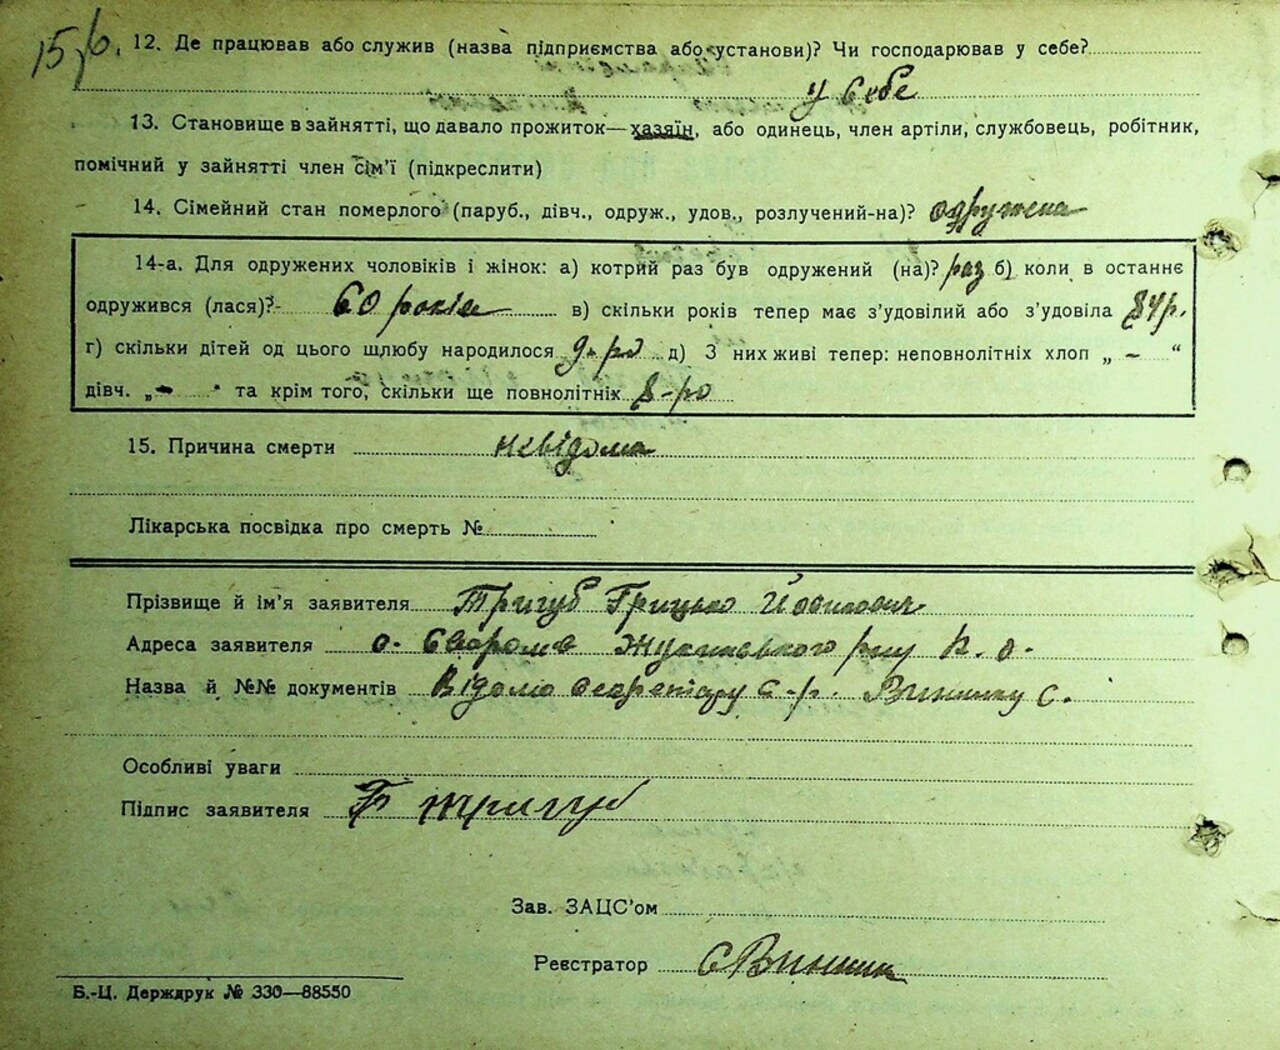 12. Де працював або служив (назва підприємства або установи)? Чи господарював у себе?
у себе
13. Становище в зайнятті, що давало прожиток—хазяїн, або одинець, член артіли, службовець, робітник,
помічний у зайнятті член сім'ї (підкреслити)
14. Сімейний стан померлого (паруб., дівч., одруж., удов., розлучений-на)? одружена
14-а. Для одружених чоловіків і жінок: а) котрий раз був одружений (на)? раз б) коли в останнє
одружився (лася)? 60 років в) скільки років тепер має з'удовілий або з'удовіла 84 р.
г) скільки дітей од цього шлюбу народилося 9-ро д) З них живі тепер: неповнолітніх хлоп „ - “
дівч. „ - “ та крім того, скільки ще повнолітніх 8-ро
15. Причина смерти невідома
Лікарська посвідка про смерть №
Прізвище й ім'я заявителя Тригуб Грицько
Адреса заявителя с. Сваром'є р-ну К. о.
Назва й №№ документів Відомо секретару с-р. Виннику С.
Особливі уваги
Підпис заявителя Г Тригуб
Зав. ЗАЦС'ом
Реєстратор С Винник
Б.-Ц. Держдрук № 330—88550